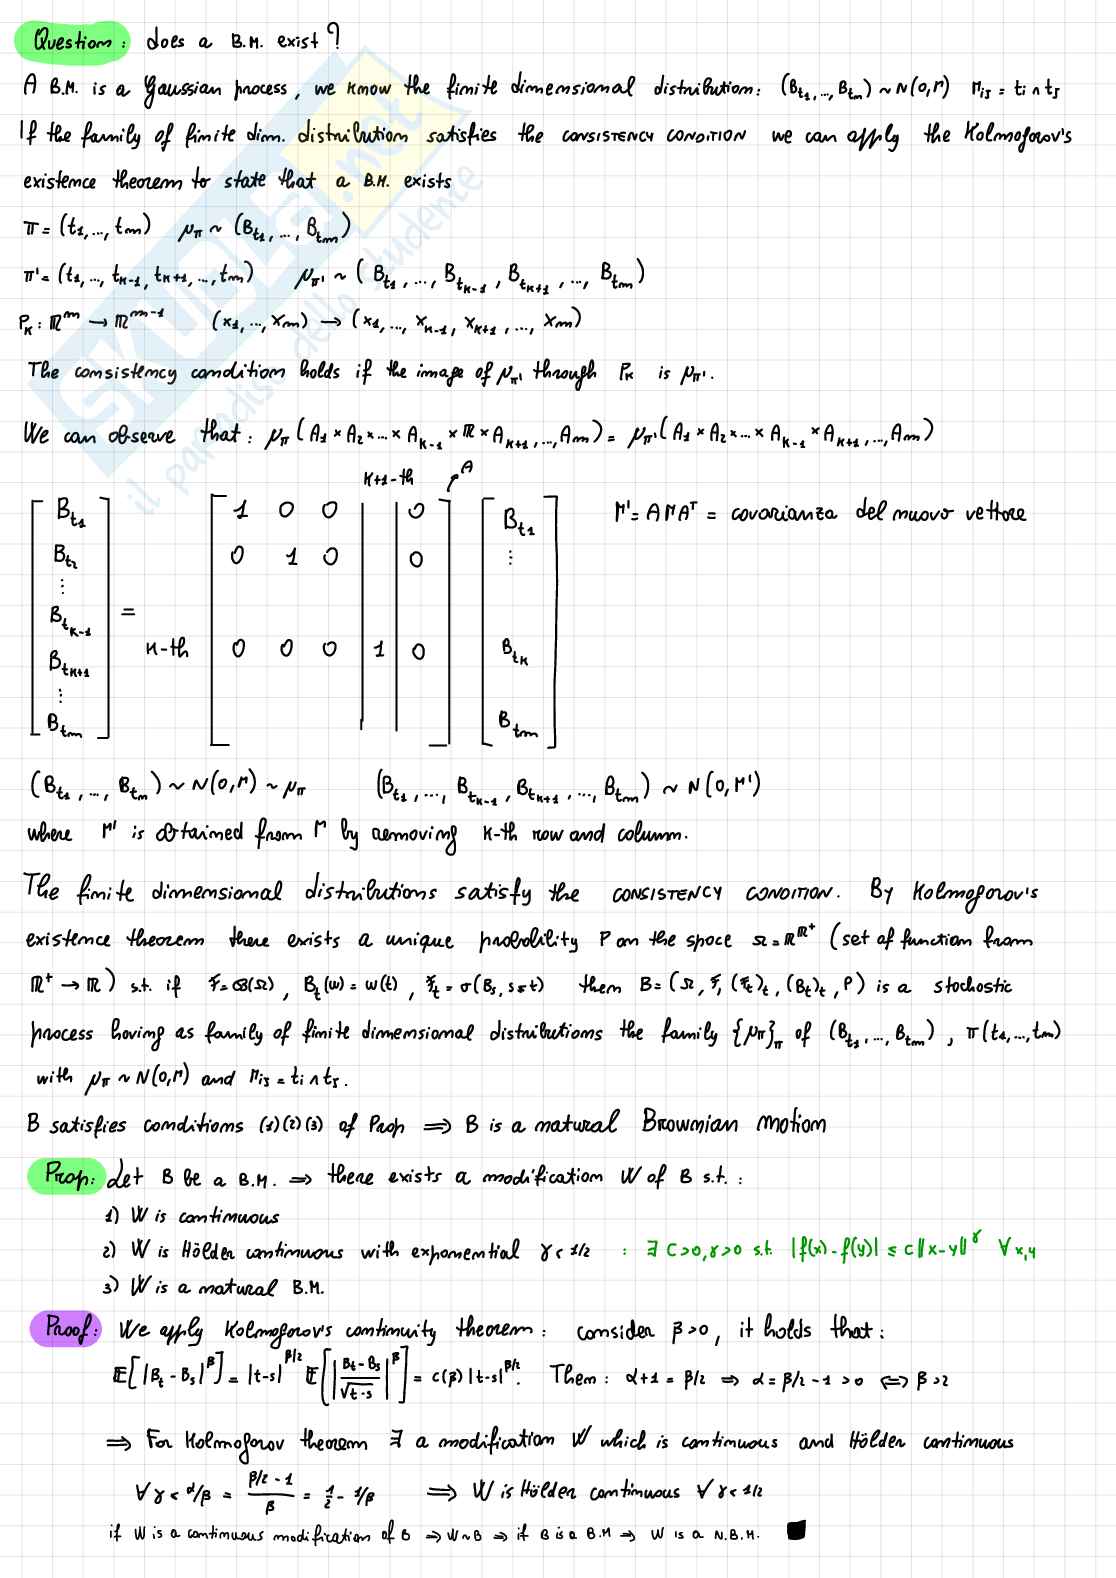 Question: does a B.M. exist?
A B.M. is a Gaussian process, we know the finite dimensional distribution: (B_t1, ..., B_tm) ~ N(0,Γ) Γij = ti ∧ tj
If the family of finite dim. distribution satisfies the CONSISTENCY CONDITION we can apply the Kolmogorov's
existence theorem to state that a B.M. exists
π = (t1, ..., tm) μπ ~ (B_t1, ..., B_tm)
π' = (t1, ..., tk-1, tk+1, ..., tm) μπ' ~ (B_t1, ..., B_tk-1, B_tk+1, ..., B_tm)
Pk : ℝ^m → ℝ^m-1 (x1, ..., xm) → (x1, ..., xk-1, xk+1, ..., xm)
The consistency condition holds if the image of μπ' through Pk is μπ'.
We can observe that: μπ(A1 × A2 × ... × Ak-1 × ℝ × Ak+1, ..., Am) = μπ'(A1 × A2 × ... × Ak-1 × Ak+1, ..., Am)
k+1-th A
B_t1 1 0 0 0 B_t1 Γ' = AΓA^T = covarianza del nuovo vettore
B_t2 0 1 0 0 ⋮
⋮
B_tk-1 =
k-th 0 0 0 1 0 B_tk
B_tk+1
⋮
B_tm B_tm
(B_t1, ..., B_tm) ~ N(0,Γ) ~ μπ (B_t1, ..., B_tk-1, B_tk+1, ..., B_tm) ~ N(0,Γ')
where Γ' is obtained from Γ by removing k-th row and column.
The finite dimensional distributions satisfy the CONSISTENCY CONDITION. By Kolmogorov's
existence theorem there exists a unique probability P on the space Ω = ℝ^ℝ+ (set of function from
ℝ+ → ℝ) s.t. if F = B(Ω), Bt(w) = w(t), Ft = σ(Bs, s≤t) then B = (Ω, F, (Ft)t, (Bt)t, P) is a stochastic
process having as family of finite dimensional distributions the family {μπ}π of (B_t1, ..., B_tm), π(t1, ..., tm)
with μπ ~ N(0,Γ) and Γij = ti ∧ tj.
B satisfies conditions (1)(2)(3) of Prop ⟹ B is a natural Brownian motion
Prop: Let B be a B.M. ⟹ there exists a modification W of B s.t. :
1) W is continuous
2) W is Hölder continuous with exponential γ < 1/2 : ∃ C>0, γ>0 s.t. |f(x) - f(y)| ≤ C‖x-y‖^γ ∀x,y
3) W is a natural B.M.
Proof: We apply Kolmogorov's continuity theorem: consider β>0, it holds that:
𝔼[|Bt - Bs|^β] = |t-s|^β/2 𝔼[|(Bt - Bs)/√(t-s)|^β] = c(β)|t-s|^β/2. Then: α+1 = β/2 ⟹ α = β/2 - 1 > 0 ⟺ β>2
⟹ For Kolmogorov theorem ∃ a modification W which is continuous and Hölder continuous
∀γ < α/β = (β/2 - 1)/β = 1/2 - 1/β ⟹ W is Hölder continuous ∀γ < 1/2
if W is a continuous modification of B ⟹ W~B ⟹ if B is a B.M ⟹ W is a N.B.M.
SKUOLA.net
il paradiso dello studente